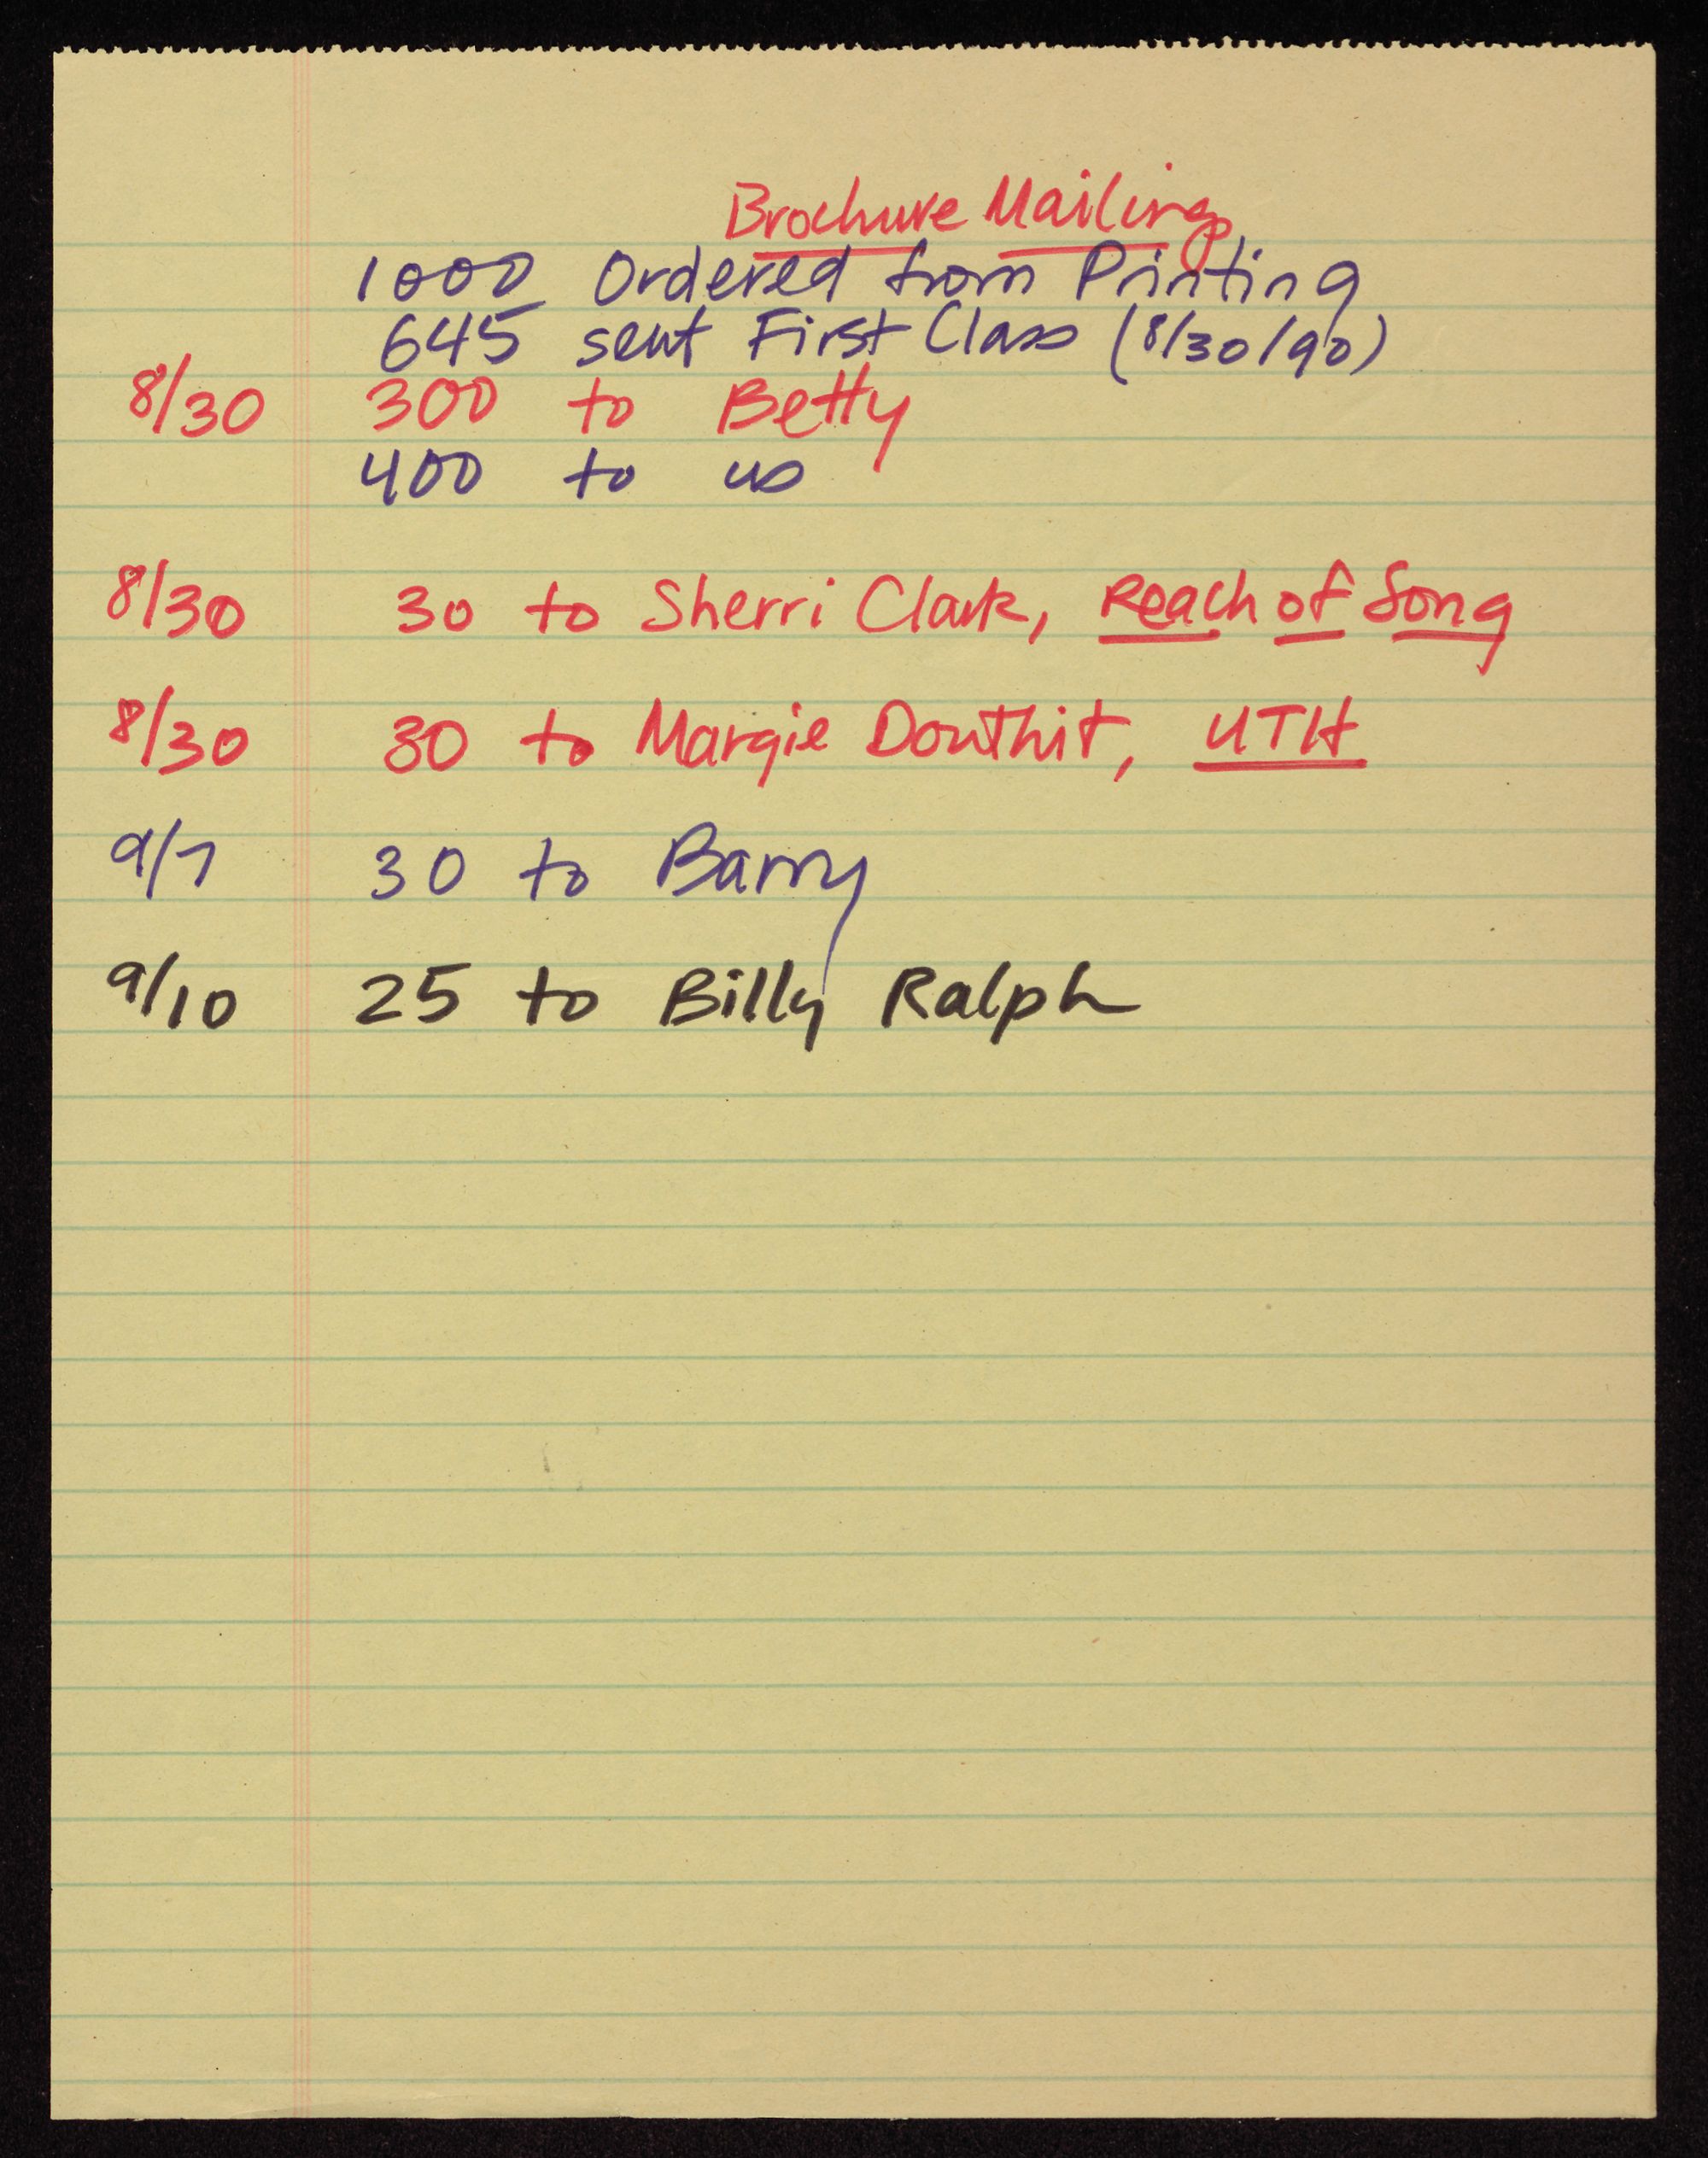 Brochure Mailing
1000 Ordered from Printing
645 sent First Class (8/30/90)
8/30 300 to Betty
400 to us
8/30 30 to Sherri Clark, Reach of Song
8/30 30 to Margie Douthit, UTH
9/7 30 to Barry
9/10 25 to Billy Ralph